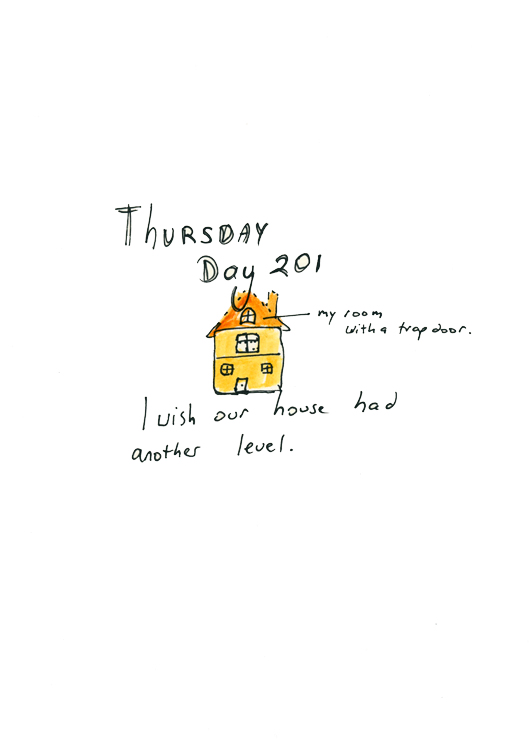 THURSDAY
Day 201
my room
with a trap door.
I wish our house had
another level.